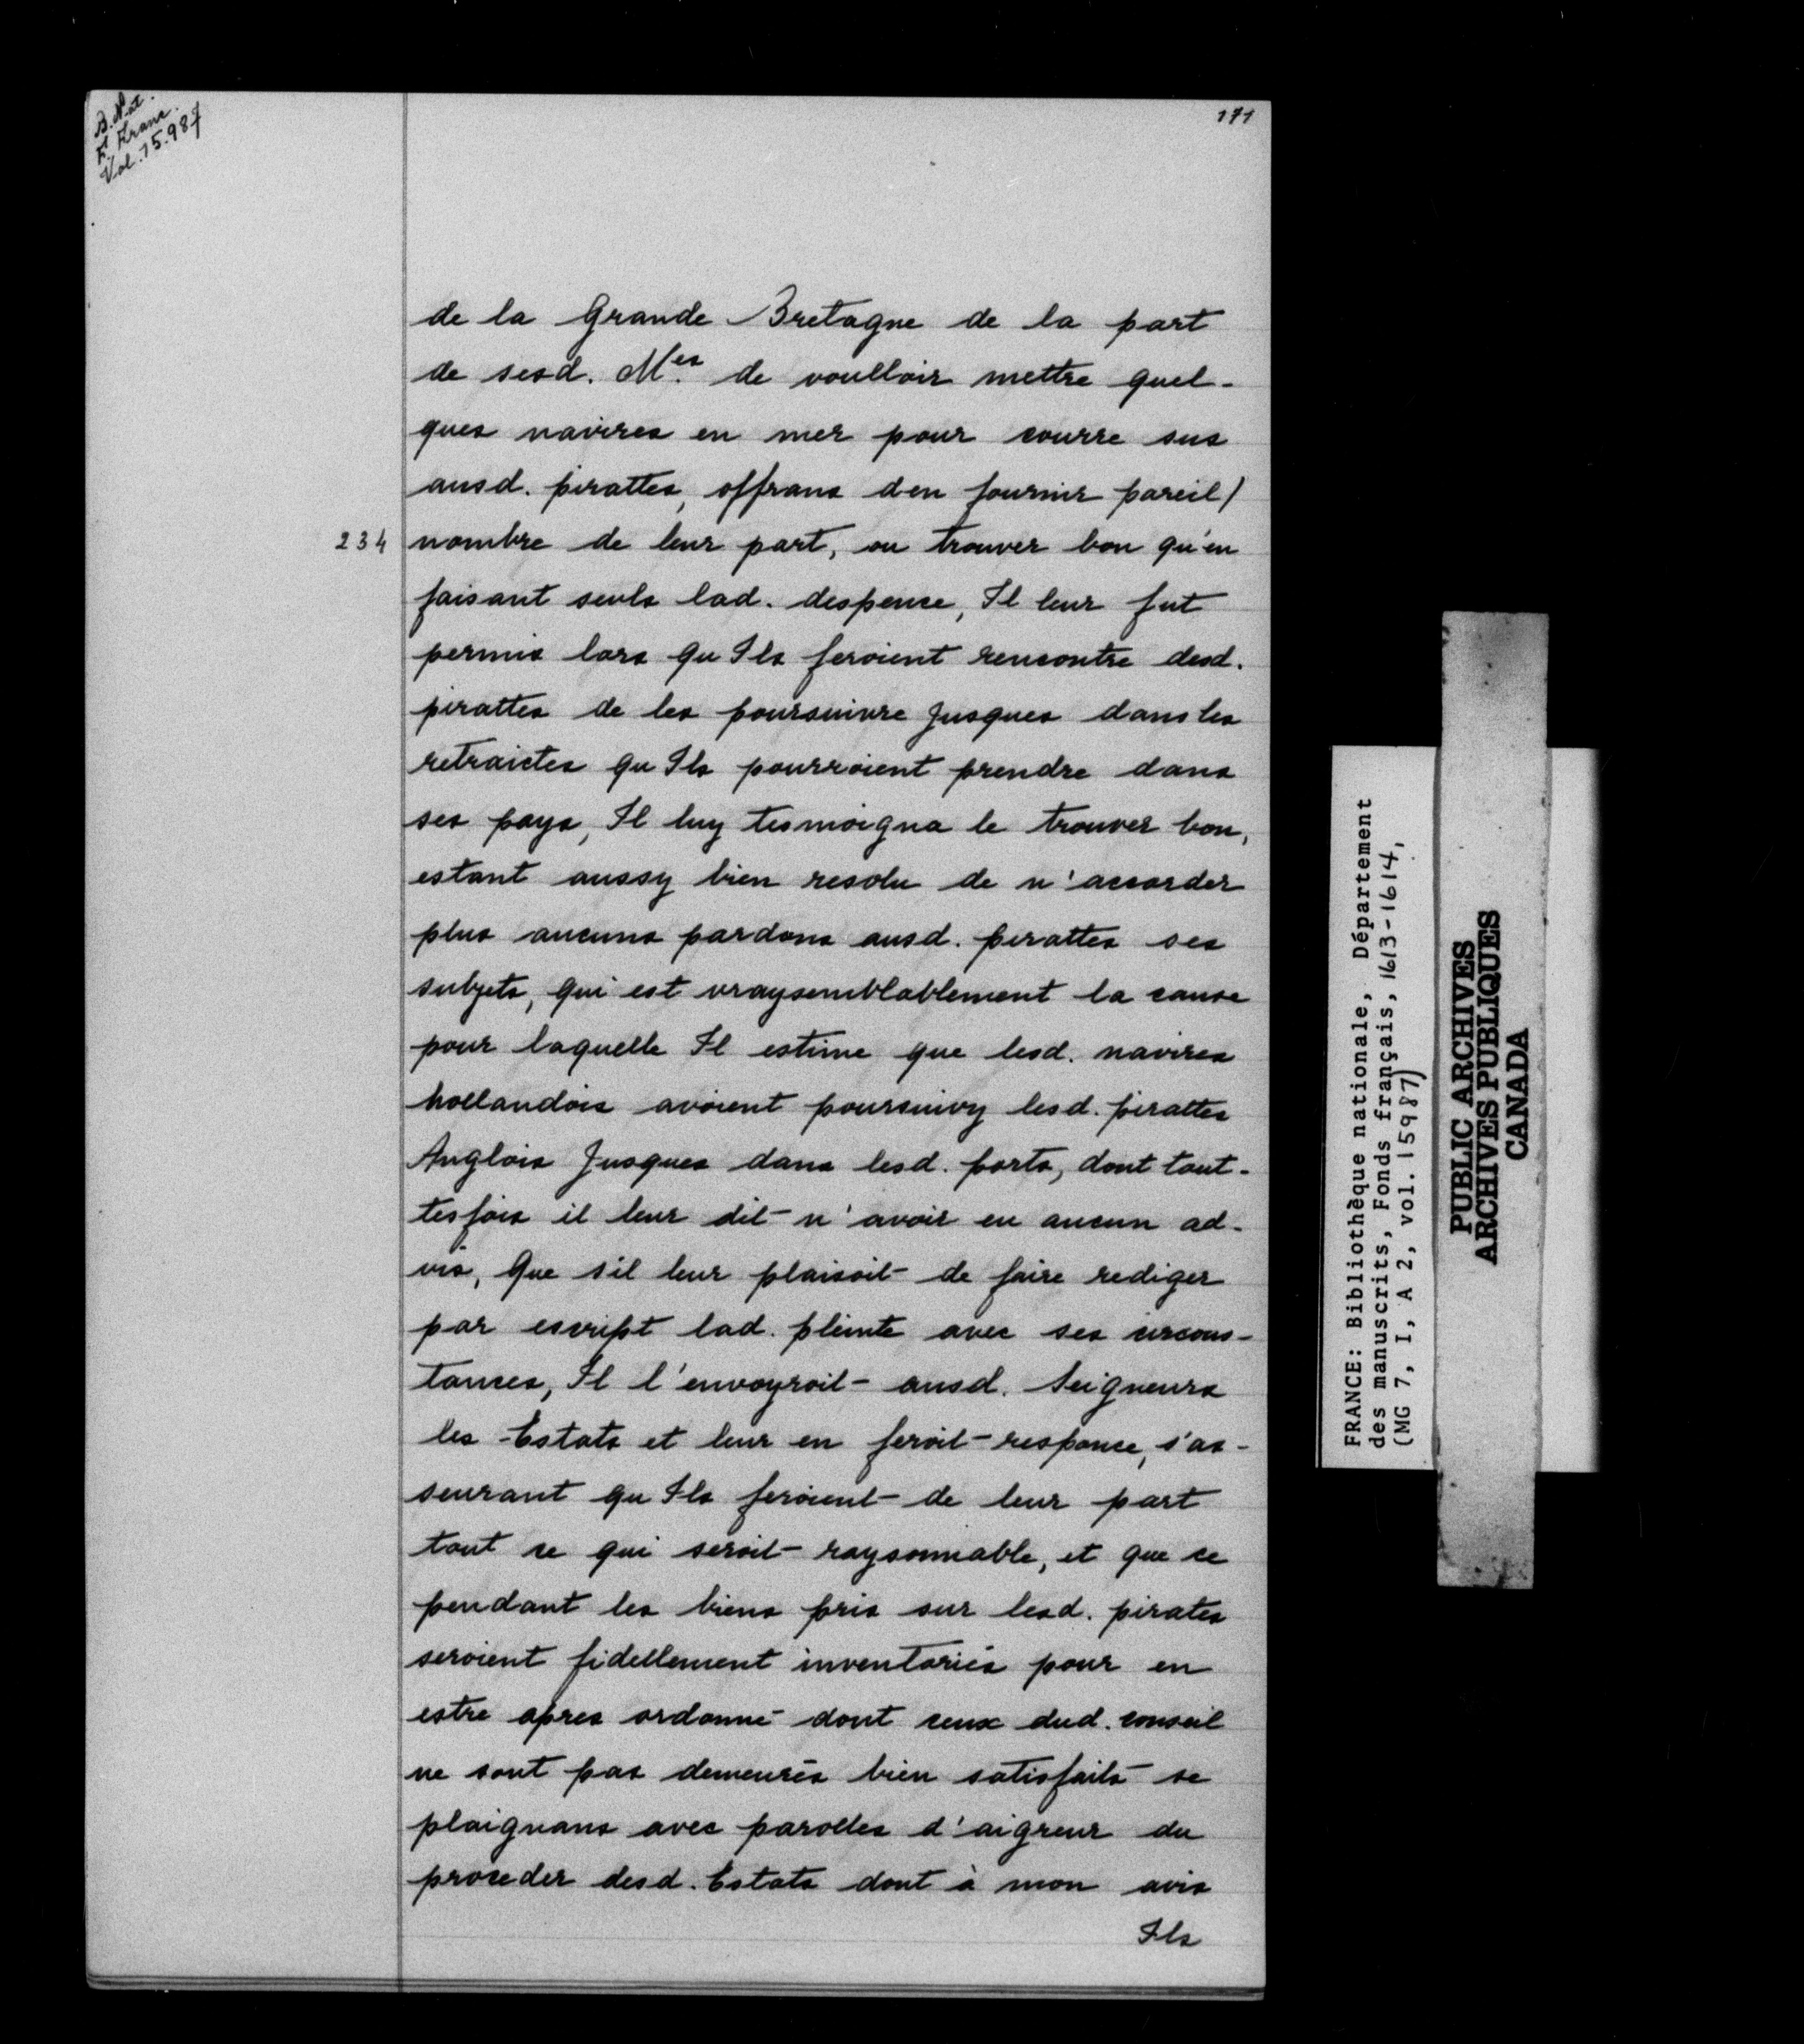 B. Nat.
F. Franc.
Vol. 15.987
171
de la Grande Bretagne de la part
de sesd. M.es de voulloir mettre quel-
ques navires en mer pour courre sus
ausd. pirattes, offrans d'en fournir pareil/
234
nombre de leur part, ou trouver bon qu'en
faisant seuls lad. despence, Il leur fut
permis lors qu Ils feroient rencontre desd.
pirattes de les poursuivre Jusques dans les
retraictes qu Ils pourroient prendre dans
ses pays, Il luy tesmoigna le trouver bon,
estant aussy bien resolu de n'accorder
plus aucuns pardons ausd. pirattes ses
subjets, qui est vraysemblablement la cause
pour laquelle Il estime que lesd. navires
hollandois avoient poursuivy lesd. pirattes
Anglois Jusques dans lesd. ports, dont tout-
tesfois il leur dit n'avoir eu aucun ad-
vis, que s'il leur plaisoit de faire rediger
par escript lad. pleinte avec ses circons-
tances, Il l'envoyroit ausd. Seigneurs
les Estats et leur en feroit responce, s'as-
seurant qu Ils feroient de leur part
tout ce qui seroit raysonnable, et que ce
pendant les biens pris sur lesd. pirates
seroient fidellement inventoriés pour en
estre apres ordonné dont ceux dud. conseil
ne sont pas demeurés bien satisfaits se
plaignans avec parolles d'aigreur du
proceder desd. Estats dont à mon avis
Ils
FRANCE: Bibliothèque nationale, Département
des manuscrits, Fonds français, 1613-1614,
(MG 7, I, A 2, vol. 15987)
PUBLIC ARCHIVES
ARCHIVES PUBLIQUES
CANADA